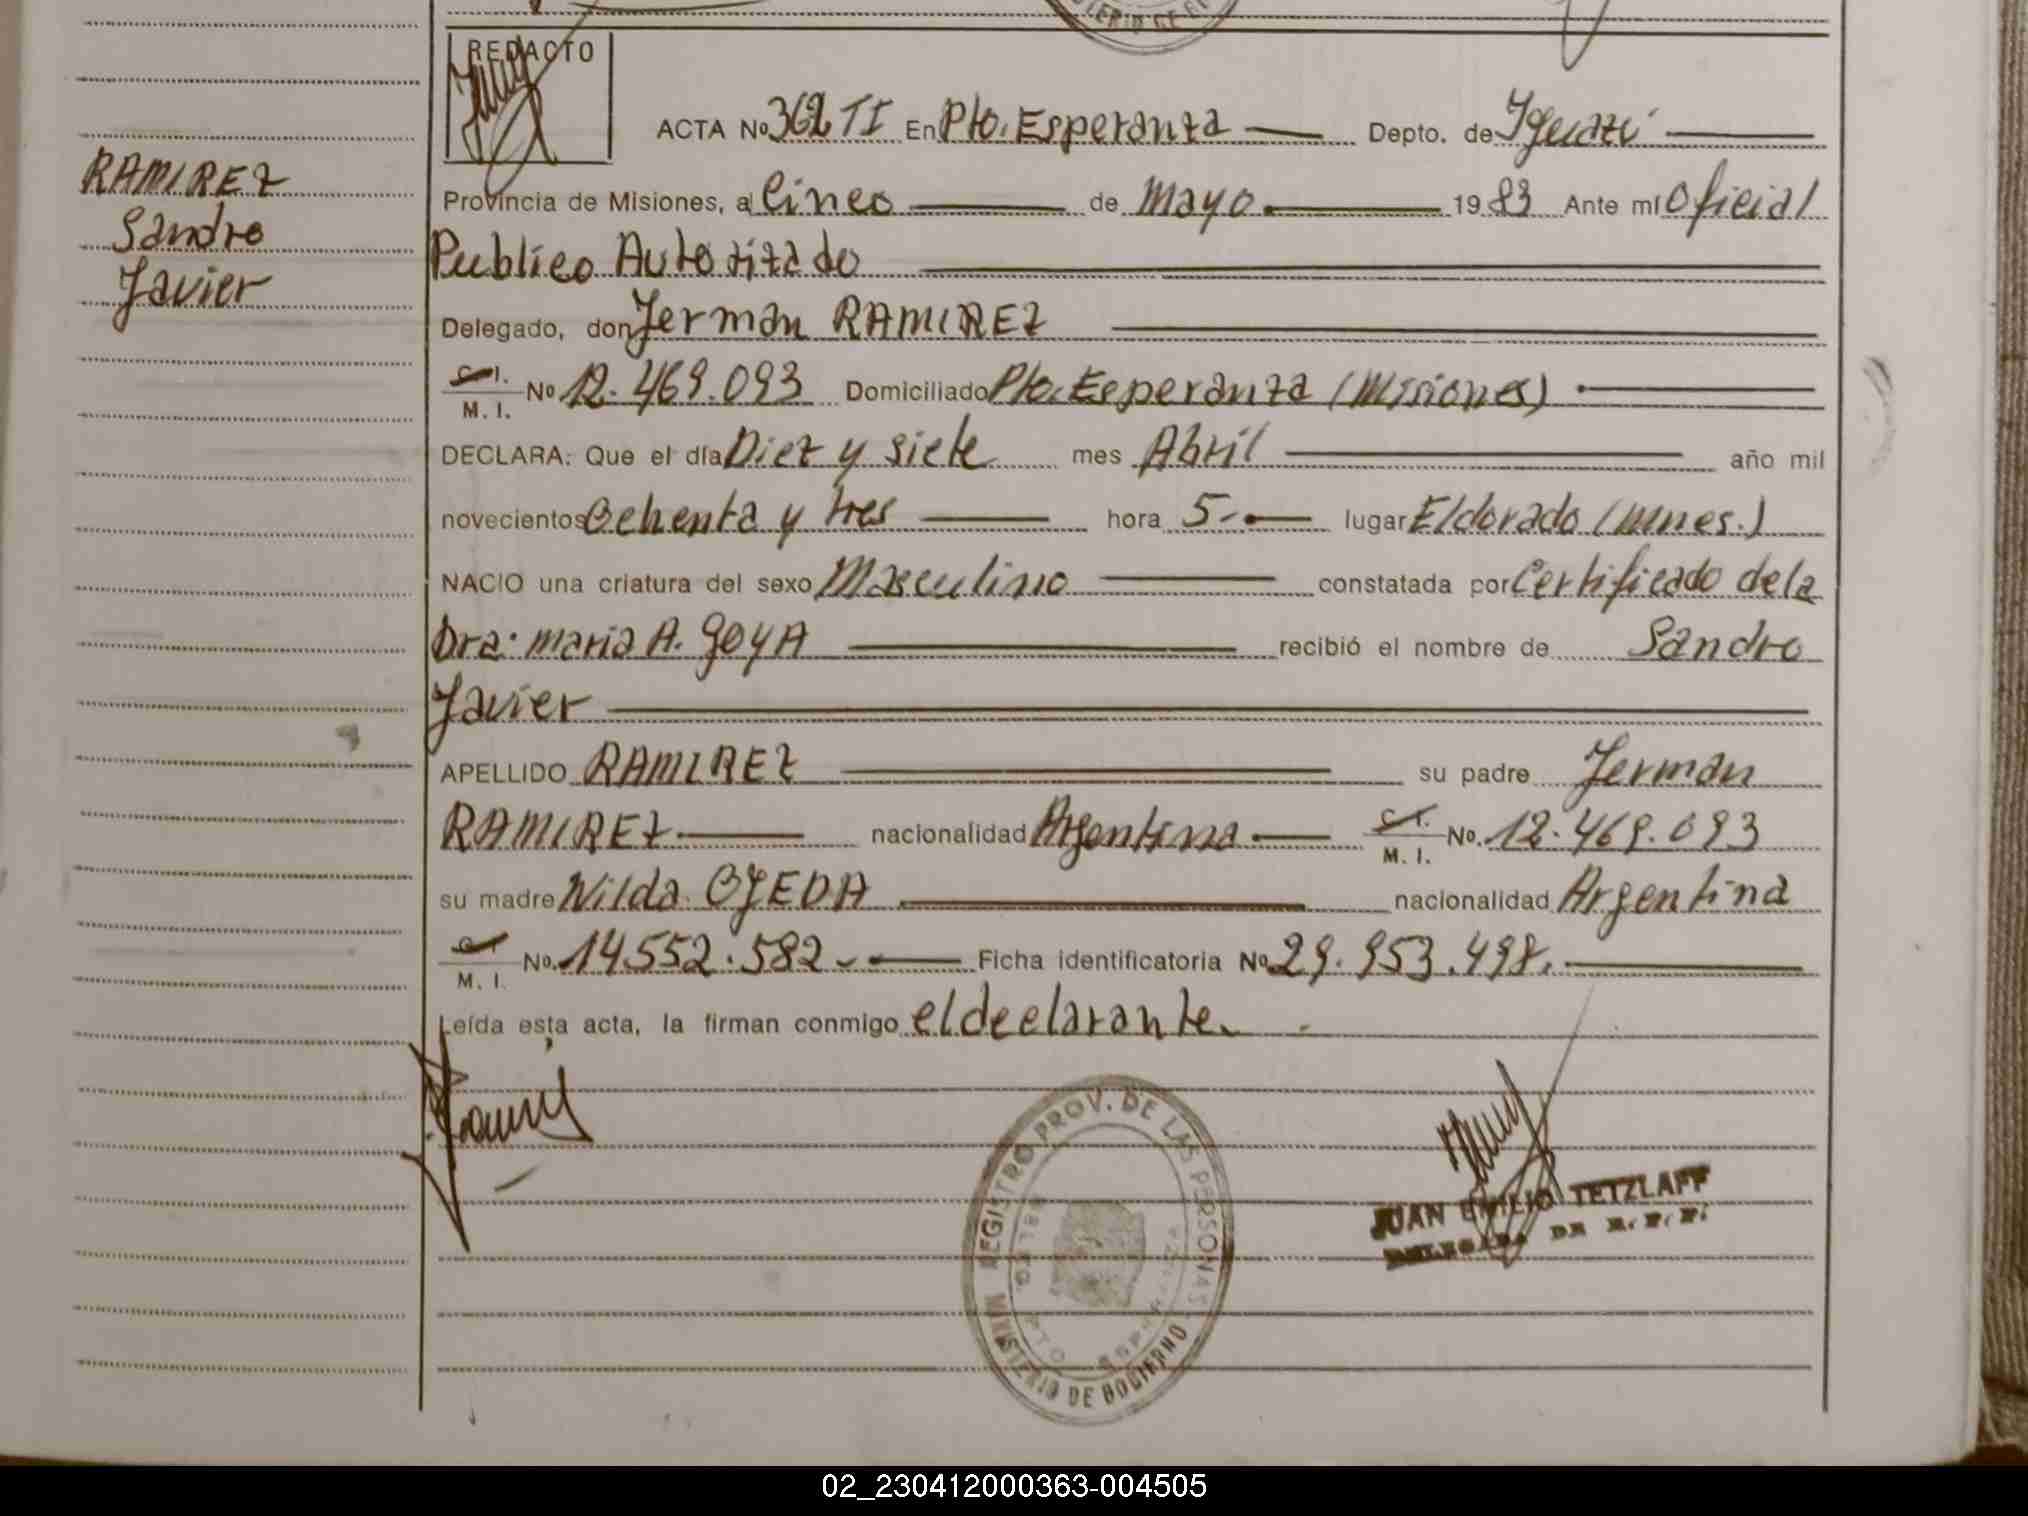 REDACTO
ACTA No 362 TI En Pto. Esperanza Depto. de Iguazú
RAMIREZ
Sandro
Javier
Provincia de Misiones, a Cinco de Mayo 1983 Ante mí Oficial
Publico Autorizado
Delegado, don Jerman RAMIREZ
C. I.
M. I. No 12.469.093 Domiciliado Pto. Esperanza (Misiones)
DECLARA: Que el día Diez y siete mes Abril año mil
novecientos Ochenta y tres hora 5.- lugar Eldorado (Mnes.)
NACIO una criatura del sexo Masculino constatada por Certificado de la
Dra. Maria A. GOYA recibió el nombre de Sandro
Javier
APELLIDO RAMIREZ su padre Jerman
RAMIREZ nacionalidad Argentina C. I.
M. I. No. 12.469.093
su madre Nilda OJEDA nacionalidad Argentina
C. I.
M. I. No. 14552.582.- Ficha identificatoria No 29.953.498.
Leída esta acta, la firman conmigo el declarante.
REGISTRO PROV. DE LAS PERSONAS
MINISTERIO DE GOBIERNO
JUAN EMILIO TETZLAFF
DELEGADO DE R. P. P.
02_230412000363-004505